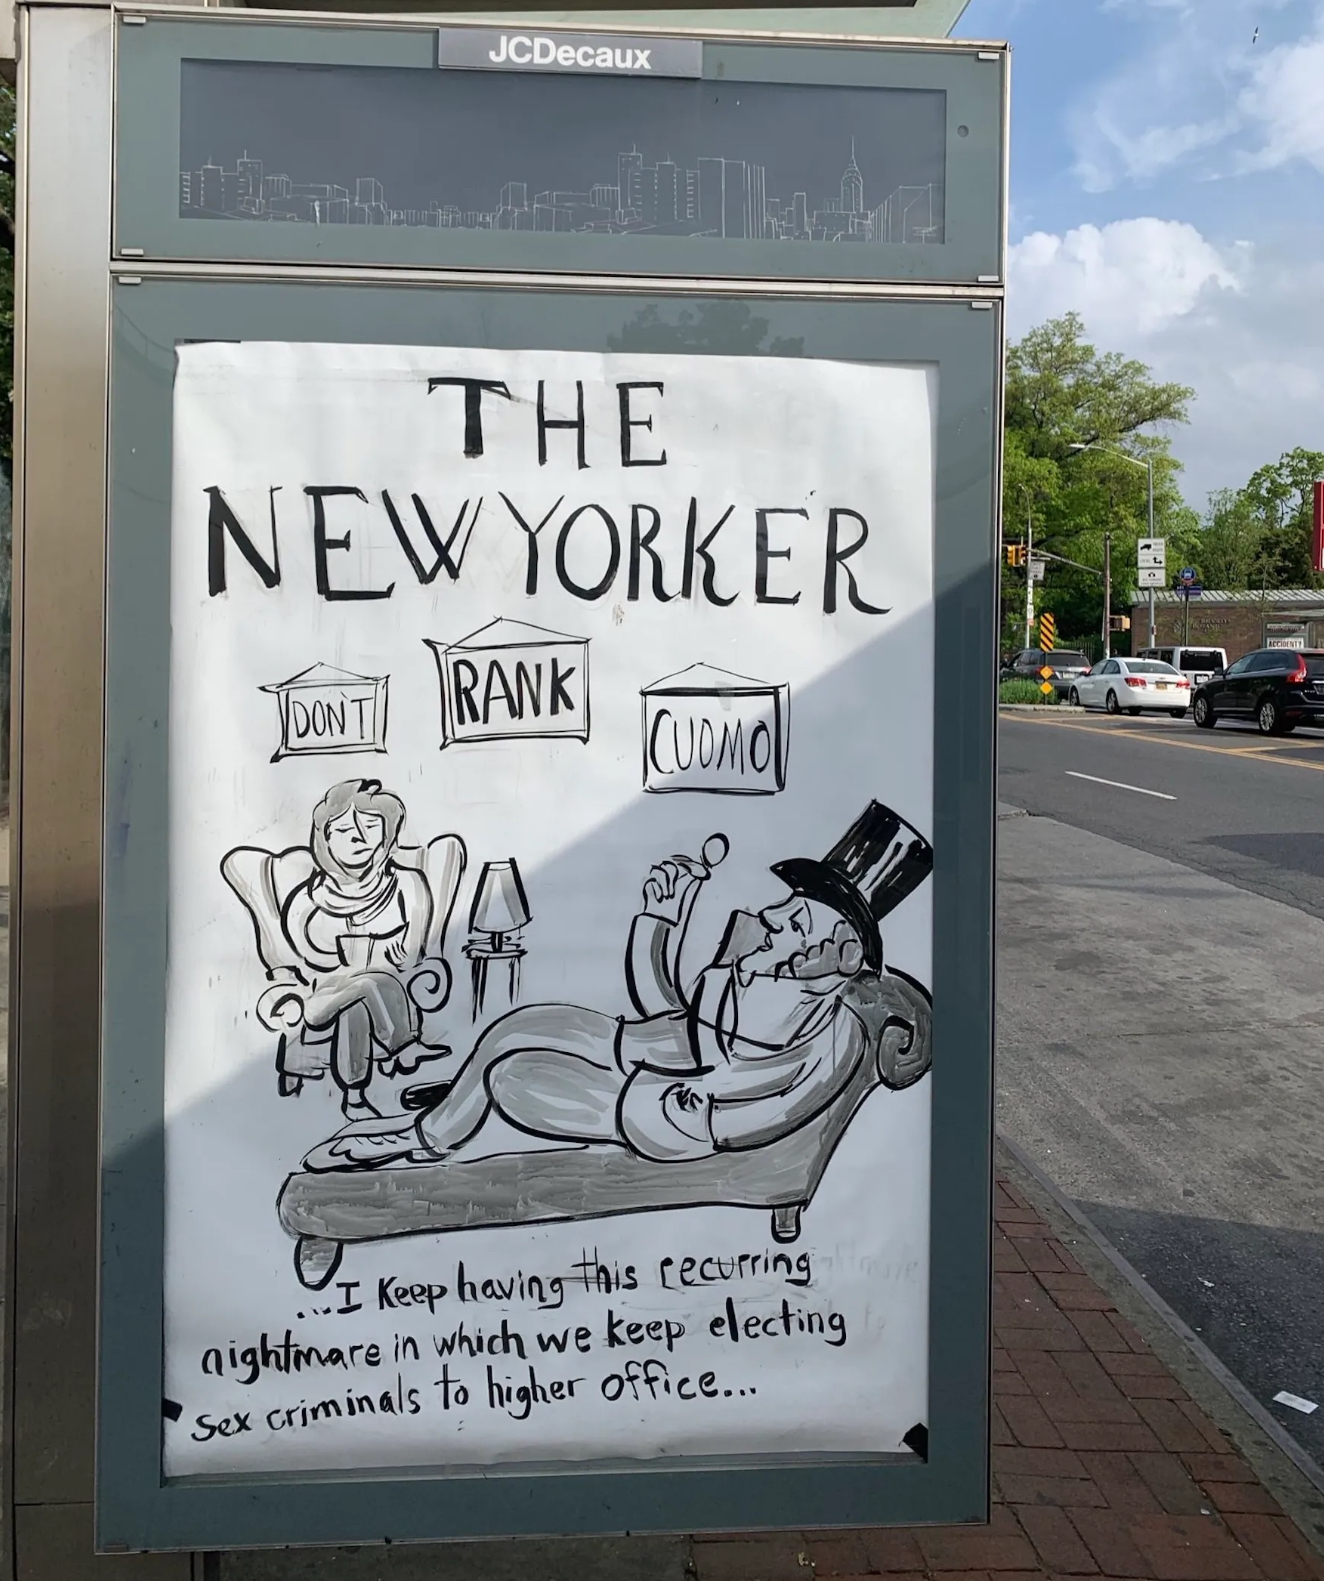 JCDecaux
THE
NEW YORKER
DON'T
RANK
CUOMO
...I Keep having this recurring
nightmare in which we keep electing
sex criminals to higher office...
ACCIDENT?